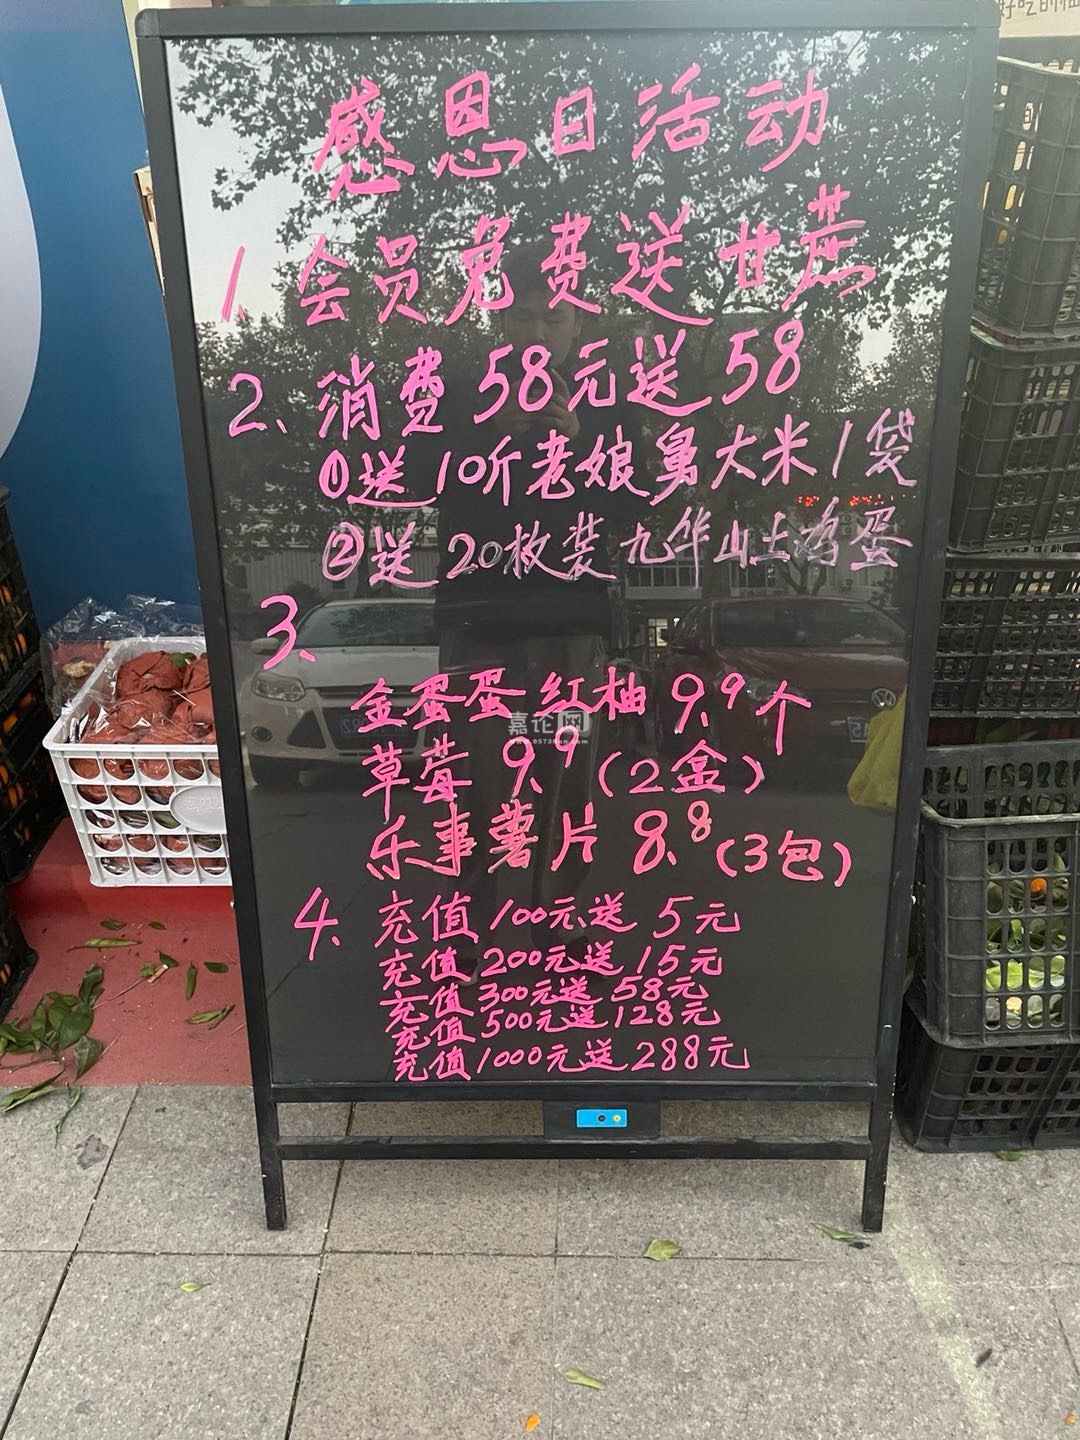 好吃的柚
感恩日活动
1、会员免费送甘蔗
2、消费58元送58
①送10斤老娘舅大米1袋
②送20枚装九华山土鸡蛋
3、
金蛋蛋红柚9.9个
草莓9.9(2盒)
乐事薯片8.8(3包)
4、充值100元送5元
充值200元送15元
充值300元送58元
充值500元送128元
充值1000元送288元
嘉论网
www.0573ren.com